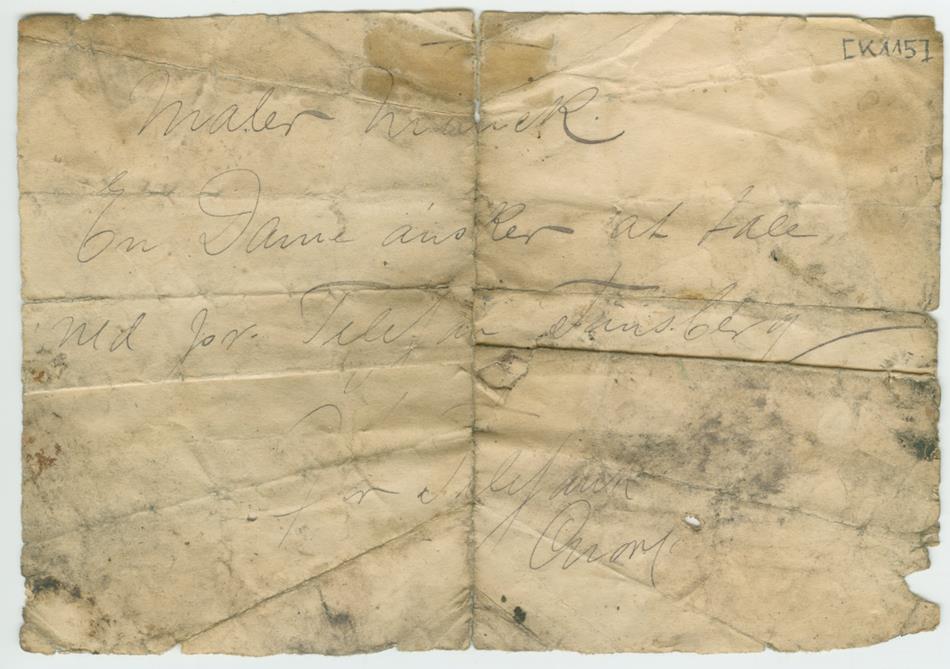 [K1157]
Maler Munck.
En Dame ønsker at tale
med pr. Telefon Tønsberg
For Telefonen